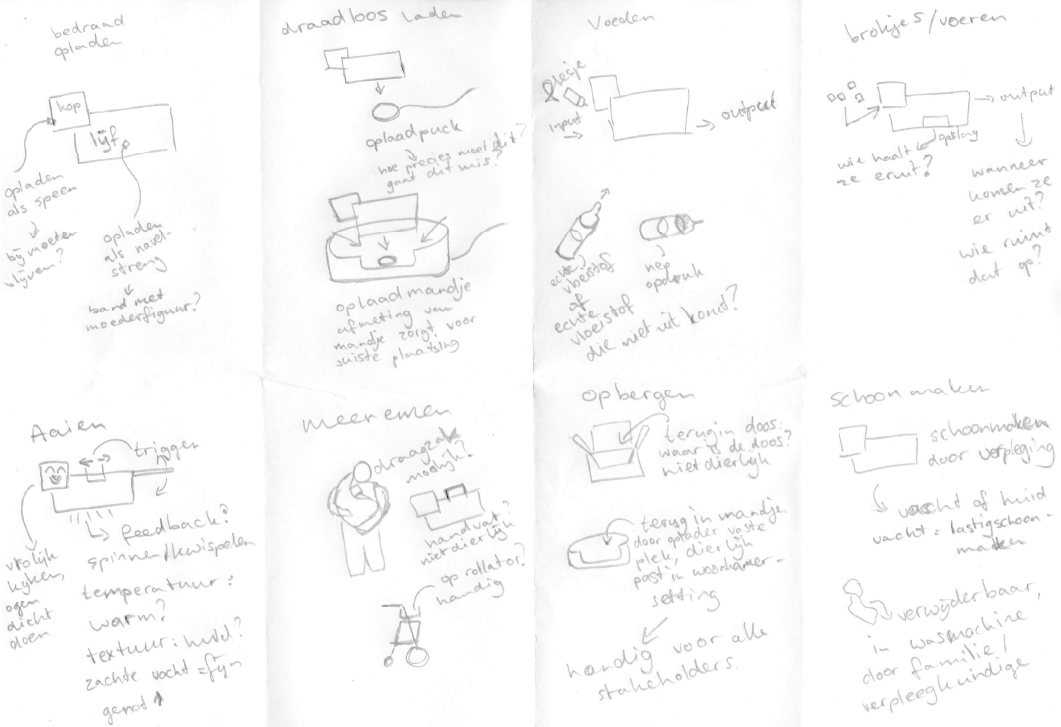 bedraad
opladen
kop
lijf
opladen
als speen
bij moeten
blijven?
opladen
als navel-
streng
band met
moederfiguur?
draadloos laden
oplaadpuck
hoe precies moet dit?
gaat dit mis?
oplaadmandje
afmeting van
mandje zorgt voor
juiste plaatsing
Voeden
flesje
input
output
echte
vloeistof
of
echte
vloeistof
die niet uit komt?
nep
opdruk
brokjes/voeren
output
opslag
wie haalt
ze eruit?
wanneer
komen ze
er uit?
wie ruimt
dat op?
Aaien
trigger
feedback?
spinnen/kwispelen
temperatuur:
warm?
textuur: huid?
zachte vacht = fijn
genot
vrolijk
kijken,
ogen
dicht
doen
meenemen
draagzak
moeilijk?
handvat?
niet dierlijk
op rollator?
handig
opbergen
terug in doos:
waar is de doos?
niet dierlijk
terug in mandje
door oplader vaste
plek, dierlijk
past in woonkamer-
setting
handig voor alle
stakeholders.
schoonmaken
schoonmaken
door verpleging
vacht of huid
vacht = lastig schoon-
maken
verwijderbaar,
in wasmachine
door familie/
verpleegkundige